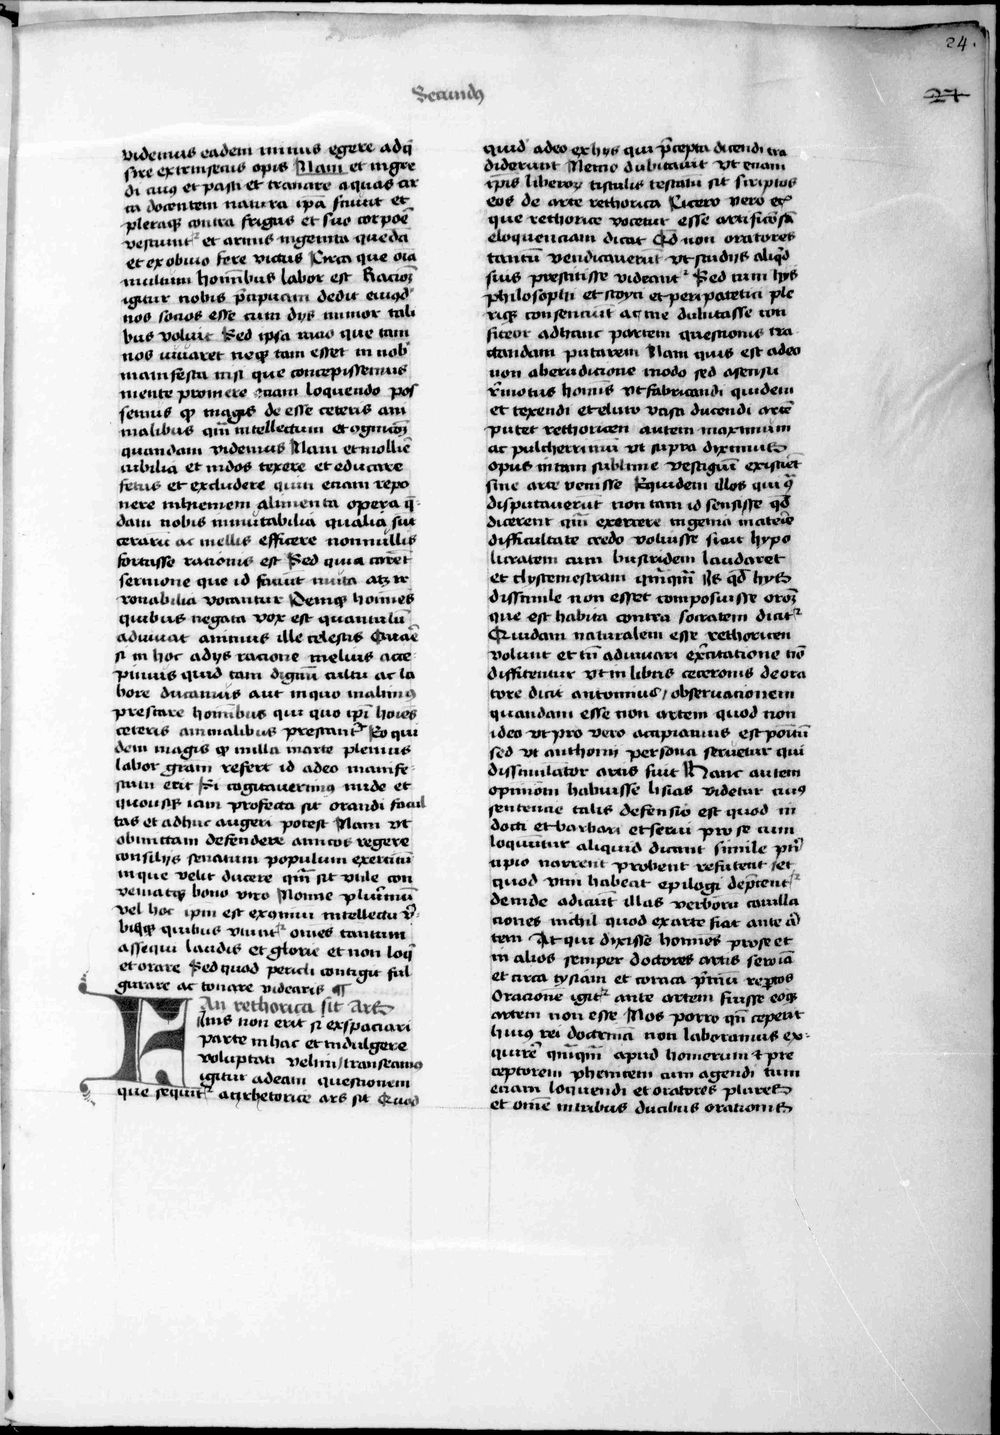 24.
Secundꝰ
27
videmus eadem minus egere adq̄
sire extrinsecus opis Nam et ingre
di cicius et pasci et tranare aquas cit
ra docentem natura ipā sciunt et
pleraqꝫ contra frigus et suo corpoē
vestiunt᷑ et armis ingenita quedā
et ex obuio fere victus Circa que oīa
multum homībus labor est Racioēꝫ
igitur nobis p̄cipuam dedit eiusqꝫ
nos socios esse cum dijs inmor tali
bus voluit Sed ipsa racio que tam
nos iuuaret neqꝫ tam esset in nob᷒
manifesta nisi que concepissemus
mente promere eciam loquendo pos
semus qꝫ magis de esse ceteris ani
malibus qm̄ intellectum et cogitacōꝫ
quandam videmus Nam et mollire
cubilia et nidos texere et educare
fetus et excludere quin eciam repo
nere in hyemem alimenta opera q̄
dam nobis inimitabilia qualia sūt
cerarū ac mellis efficere nonnullis
fortasse racionis est Sed quia carēt
sermone que id faciūt muta atqꝫ ir
ronabilia vocantur Deniqꝫ homīes
quibus negata vox est quantulū
adiuuat animus ille celestis Quare
si in hoc a dijs racione melius acce
pimus quid tam dignū cultu ac la
bore ducamus aut in quo malimꝰ
prestare homībus qui quo ipī hoīes
ceteris animalibus prestant᷑ Eo qui
dem magis qꝫ nulla in arte plenius
labor gram refert id adeo manife
stum erit Si cogitauerimꝰ unde et
quousqꝫ iam profecta sit orandi facul
tas et adhuc augeri potest Nam ut
obmittam defendere amicos regere
consilijs senatum populum exercitū
in que velit ducere qm̄ sit vtile con
veniatqꝫ bono viro Nonne plurimū
vel hoc ipm̄ est ex cōmuni intellectu v̄
bisqꝫ quibus viuunt᷑ omīes tantum
assequi laudis et glorie et non loqi
et orare Sed quod pericli contigit ful
gurare ac tonare videaris ¶
An rethorica sit Ars
Finis non erit si exspaciari
parte in hac et indulgere
voluptati velim / transeamꝰ
igitur ad eam questionem
que sequit᷑ an rhetorice ars sit Quod
quid᷒ adeo ex hijs qui p̄cepta dicendi tra
diderunt Nemo dubitauit vt eciam
ip̄is librorꝫ titulis testatū sit scriptos
eos de arte rethorica Cicero vero eā
que rethorice vocetur esse artificōsā
eloquenciam dicat Qd̄ non oratores
tantū vendicauerūt vt studijs aliqd̄
suis prestitisse videant᷑ Sed cum hijs
philosophi et stoyci et peripatetici ple
riqꝫ consenciūt ac me dubitasse con
fiteor ad hanc partem questionis tra
ctandam putarem Nam quis est adeo
non ab erudicione modo sed a sensu
r̄motus homīs vt fabricandi quidem
et texendi et e luto vasa ducendi artē
putet rethoricen autem maximum
ac pulcherrimū vt supra diximus
opus in tam sublime vestigiū existēt
sine arte venisse Equidem illos qui ɔ̄
disputauerūt non tam id sensisse qd̄
dicerent qm̄ exercere ingenia materīe
difficultate credo voluisse sicut hypo
licratem cum busiridem laudaret
et clystemestram qm̄qm̄ Is qd̄ hijs
dissimile non esset composuisse oroꝫ
que est habita contra socratem dicat᷑
Quidam naturalem esse rethoricen
volunt et tn̄ adiuuari exercitatione nō
diffitentur vt in libris ciceronis de ora
tore dicit antonius / obseruacionem
quandam esse non artem quod non
ideo vt pro vero accipiamus est positū
sed vt anthonij persona seruetur qui
dissimulator artis fuit Hanc autem
opinionē habuisse lisias videtur cuiꝰ
sentencie talis defensio est quod in
docti et barbari et serui pro se cum
loquuntur aliquid dicant simile prī
cipio narrent probent refutent et
quod vim habeat epilogi dep̄cent᷑
deinde adiciūt illas verborū cauilla
ciones nichil quod ex arte fiat ante ār
tem At qui dixisse homīes pro se et
in alios semper doctores artis seriꝰ iā
et circa tysiam et coraca p̄mū rep̄tos
Oracionē igit᷑ ante artem fuisse eoqꝫ
artem non esse Nos porro qn̄ ceperit
huiꝰ rei doctrina non laboramus ex-
quirē qm̄qm̄ apud homerum ⁊ pre
ceptorem phenicem cum agendi tum
eciam loquendi et oratores plures
et omē in tribus ducibus orationis